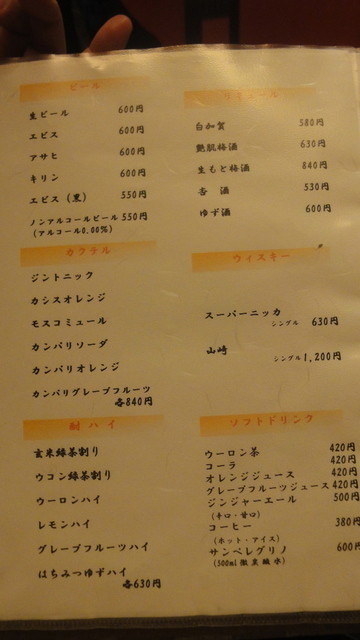 ビール
生ビール 600円
エビス 600円
アサヒ 600円
キリン 600円
エビス（黒） 550円
ノンアルコールビール 550円
（アルコール0.00%）
カクテル
ジントニック
カシスオレンジ
モスコミュール
カンパリソーダ
カンパリオレンジ
カンパリグレープフルーツ
各840円
酎ハイ
玄米緑茶割り
ウコン緑茶割り
ウーロンハイ
レモンハイ
グレープフルーツハイ
はちみつゆずハイ
各630円
リキュール
白加賀 580円
艶肌梅酒 630円
生もと梅酒 840円
杏酒 530円
ゆず酒 600円
ウィスキー
スーパーニッカ
シングル 630円
山崎
シングル1,200円
ソフトドリンク
ウーロン茶 420円
コーラ 420円
オレンジジュース 420円
グレープフルーツジュース 420円
ジンジャーエール 500円
（辛口・甘口）
コーヒー 380円
（ホット・アイス）
サンペレグリノ 600円
（500ml 微炭酸水）